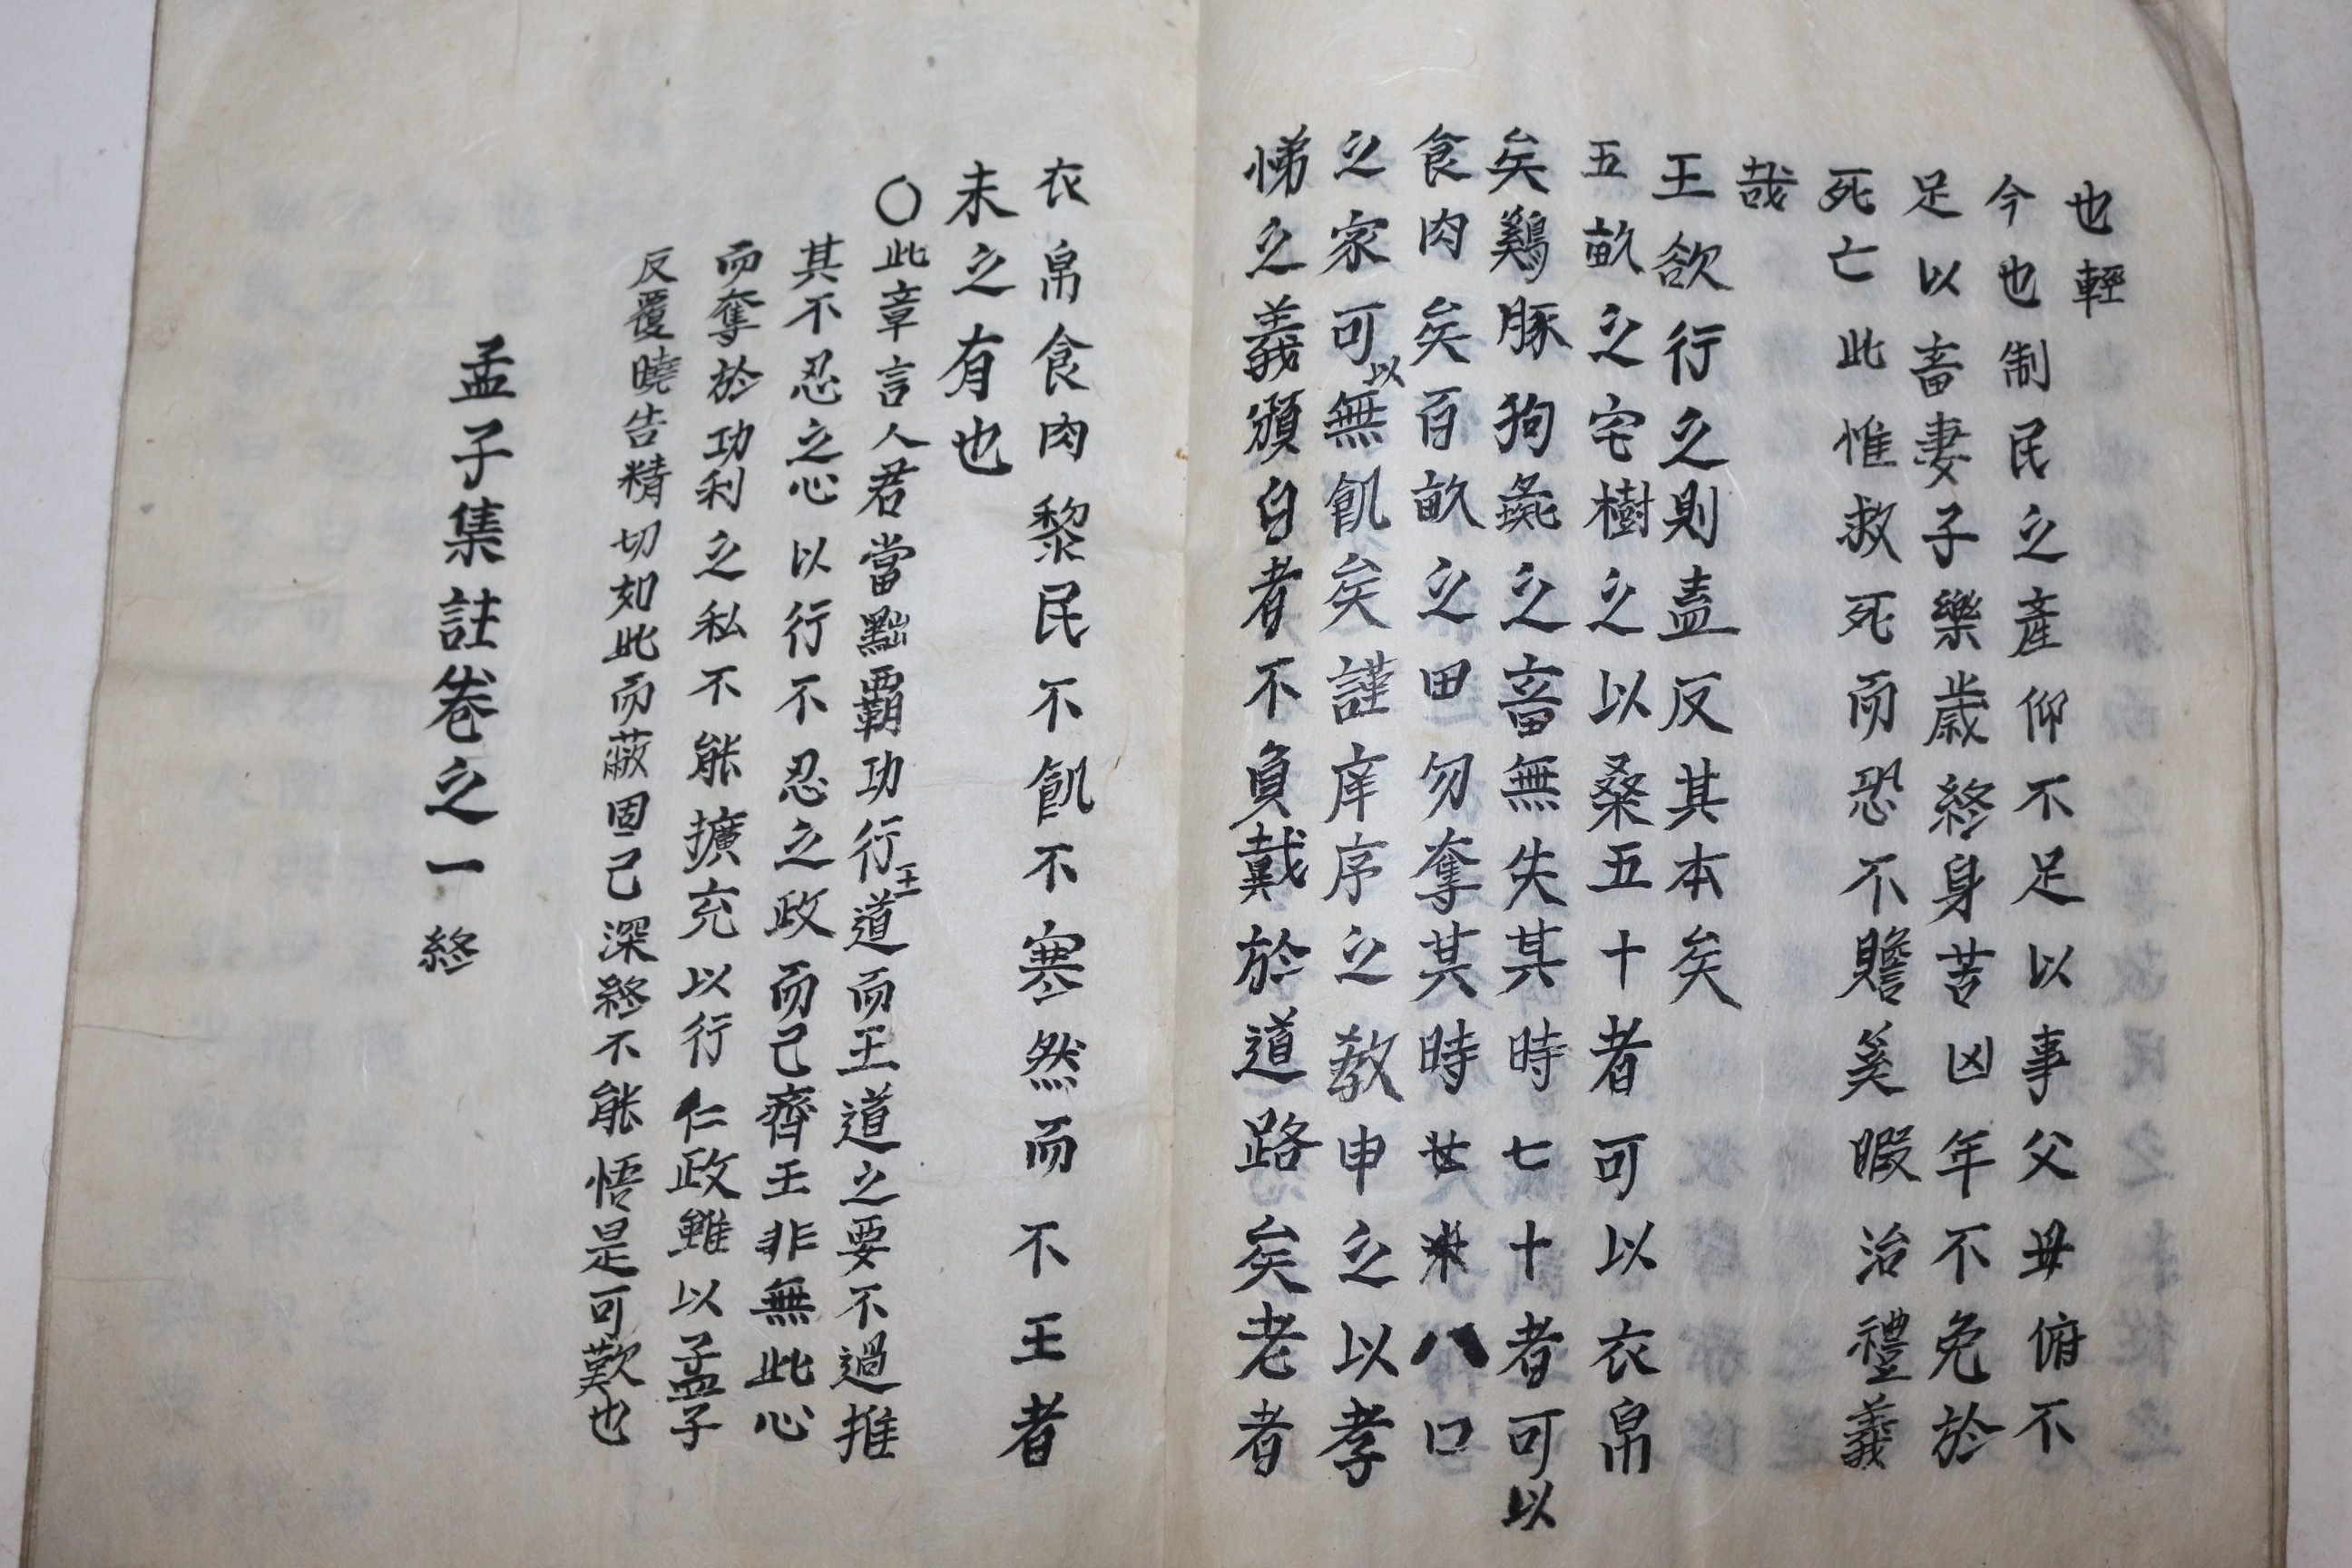 也輕
今也制民之産仰不足以事父毋俯不
足以畜妻子樂歲終身苦凶年不免於
死亡此惟救死而恐不贍奚暇治禮義
哉
王欲行之則盍反其本矣
五畝之宅樹之以桑五十者可以衣帛
矣鷄豚狗彘之畜無失其時七十者可以
食肉矣百畝之田勿奪其時八口
之家可以無飢矣謹庠序之敎申之以孝
悌之義頒白者不負戴於道路矣老者
衣帛食肉黎民不飢不寒然而不王者
未之有也
○此章言人君當黜覇功行王道而王道之要不過推
其不忍之心以行不忍之政而己齊王非無此心
而奪於功利之私不能擴充以行仁政雖以孟子
反覆曉告精切如此而蔽固己深終不能悟是可歎也
孟子集註卷之一終